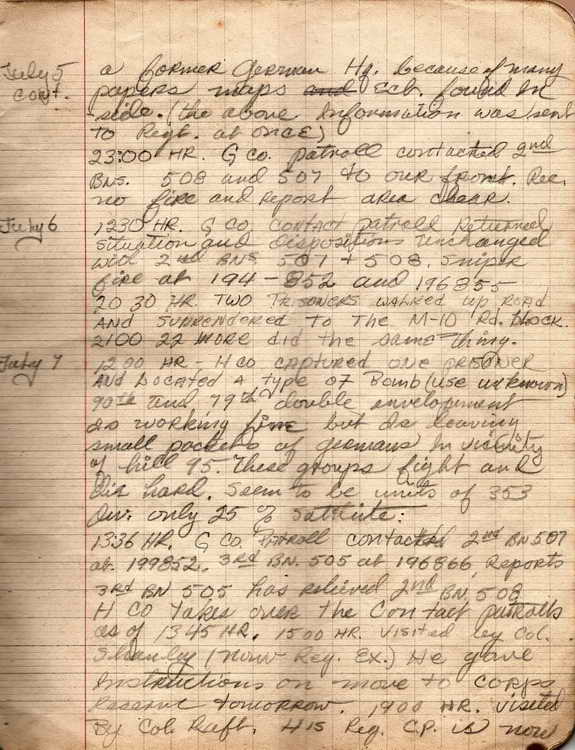 July 5 a former German Hq. because of many
cont. papers maps and Ect. found in
side. (the above information was sent
to Regt. at once)
23:00 HR. G Co. patroll contacted 2nd
BNs. 508 and 507 to our front. Rec.
no fire and report area clear.
July 6 1230 HR. G Co. contact patroll returned
situation and dispositions unchanged
with 2nd BNS 507 + 508. Sniper
fire at 194-852 and 196855
20 30 HR. TWO PRISONERS WALKED UP ROAD
AND SURRENDERED TO THE M-10 Rd. block.
2100 22 MORE did the same thing.
July 7 1200 HR - H Co captured one prisoner
AND Located A type of Bomb (use unknown)
90th and 79th double envelopment
is working fine but is leaving
small pockets of germans in vicinity
of hill 95. These groups fight and
die hard. Seem to be units of 353
Div. only 25 % Sattlite:
1336 HR. G Co. Patroll contacted 2nd BN 507
at 199852. 3rd BN. 505 at 196866 Reports
3rd BN 505 has relieved 2nd BN. 508
H CO takes over the contact patrolls
as of 1345 HR. 1500 HR. visited by Col.
Shanley (now Reg. Ex.) He gave
instructions on move to corps
Reserve tomorrow. 1900 HR. visited
By Col. Raff. His Reg. C.P. is now